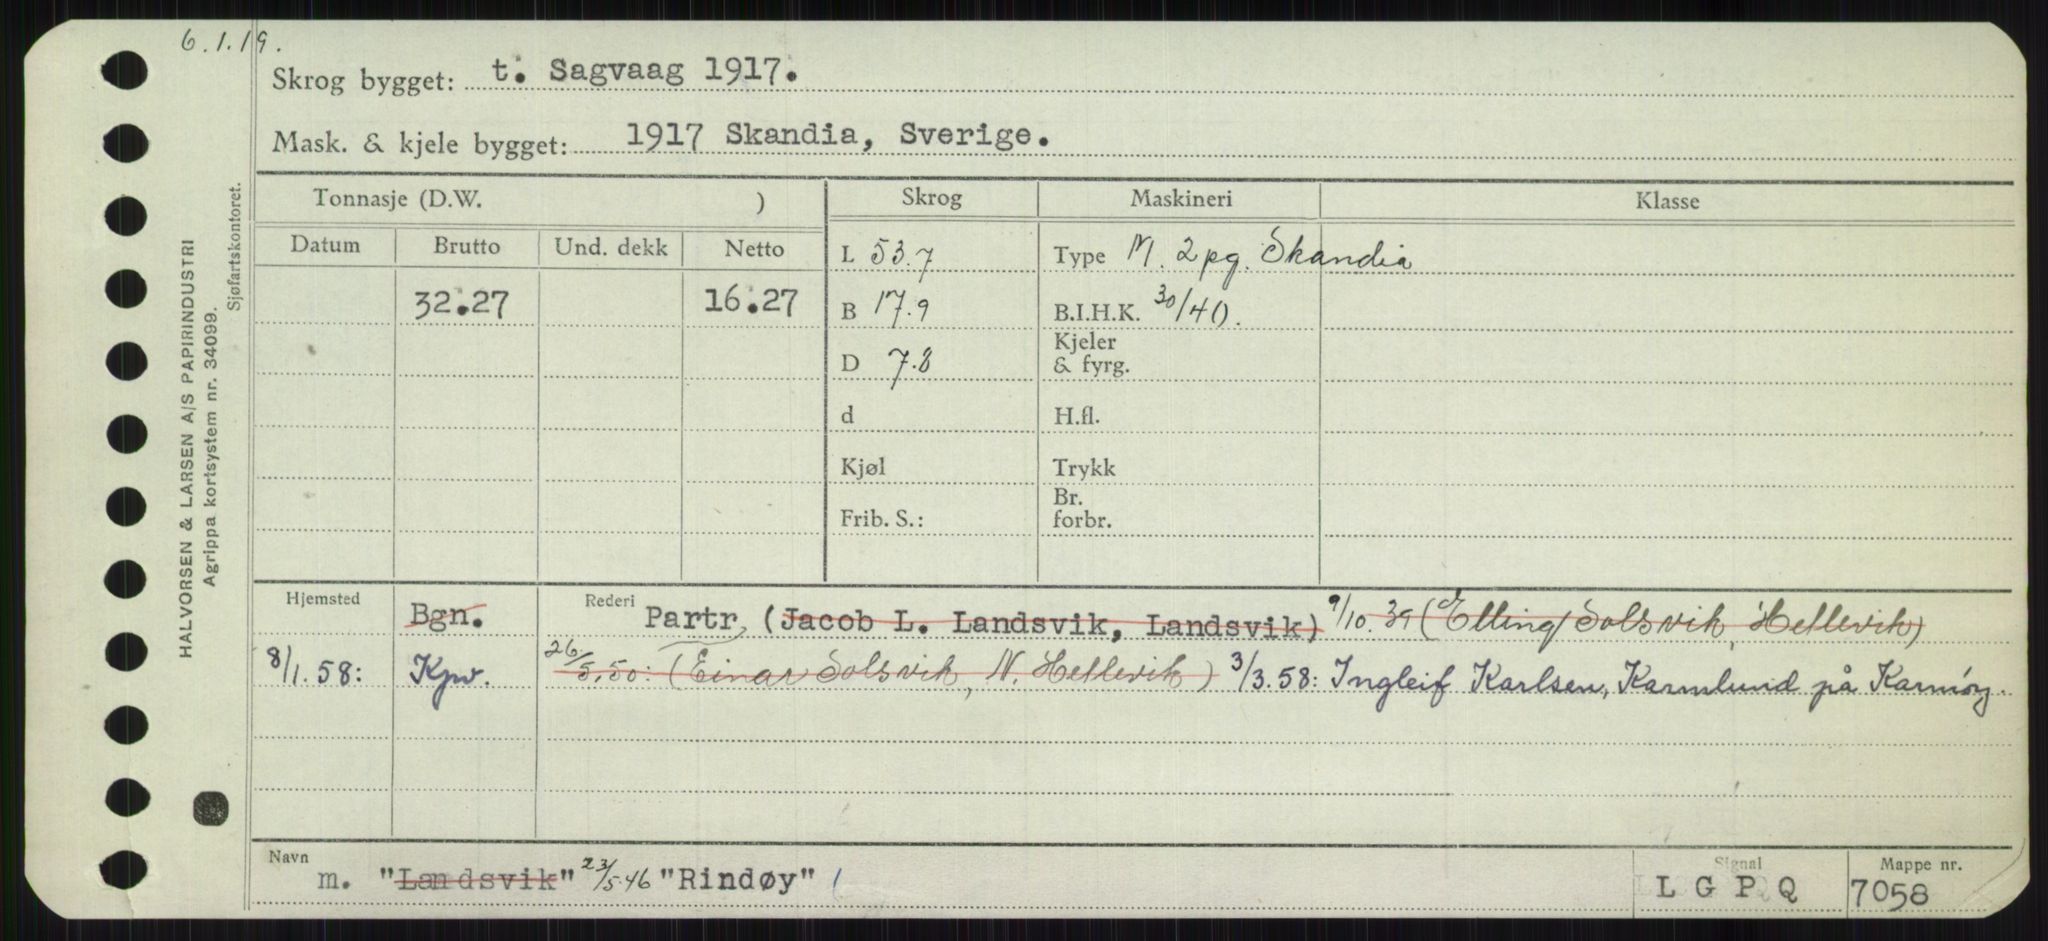 6.1.19.
Skrog bygget: t. Sagvaag 1917.
Mask. & kjele bygget: 1917 Skandia, Sverige.
Tonnasje (D.W. ) Skrog Maskineri Klasse
Datum Brutto Und. dekk Netto
L 53.7 Type M. 2 pg. Skandia
32.27 16.27 B 17.9 B.I.H.K. 30/40.
D 7.8 Kjeler & fyrg.
d H.fl.
Kjøl Trykk
Frib. S.: Br. forbr.
Hjemsted Bgn. Rederi Partr. (Jacob L. Landsvik, Landsvik) 9/10.39 (Elling Solsvik, Hellevik)
8/1.58: Kpv. 26/5.50: (Einar Solsvik, N. Hellevik) 3/3.58: Ingleif Karlsen, Karmlund på Karmöy.
Navn m. "Landsvik" 23/5.46 "Rindøy" (
Signal L G P Q
Mappe nr. 7058
HALVORSEN & LARSEN A/S PAPIRINDUSTRI
Agrippa kortsystem nr. 34099.
Sjøfartskontoret.